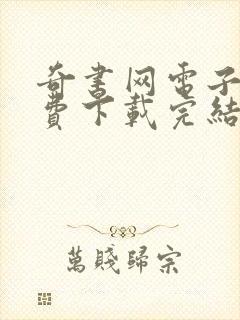 奇書网電子
費下載完結
萬賤歸宗